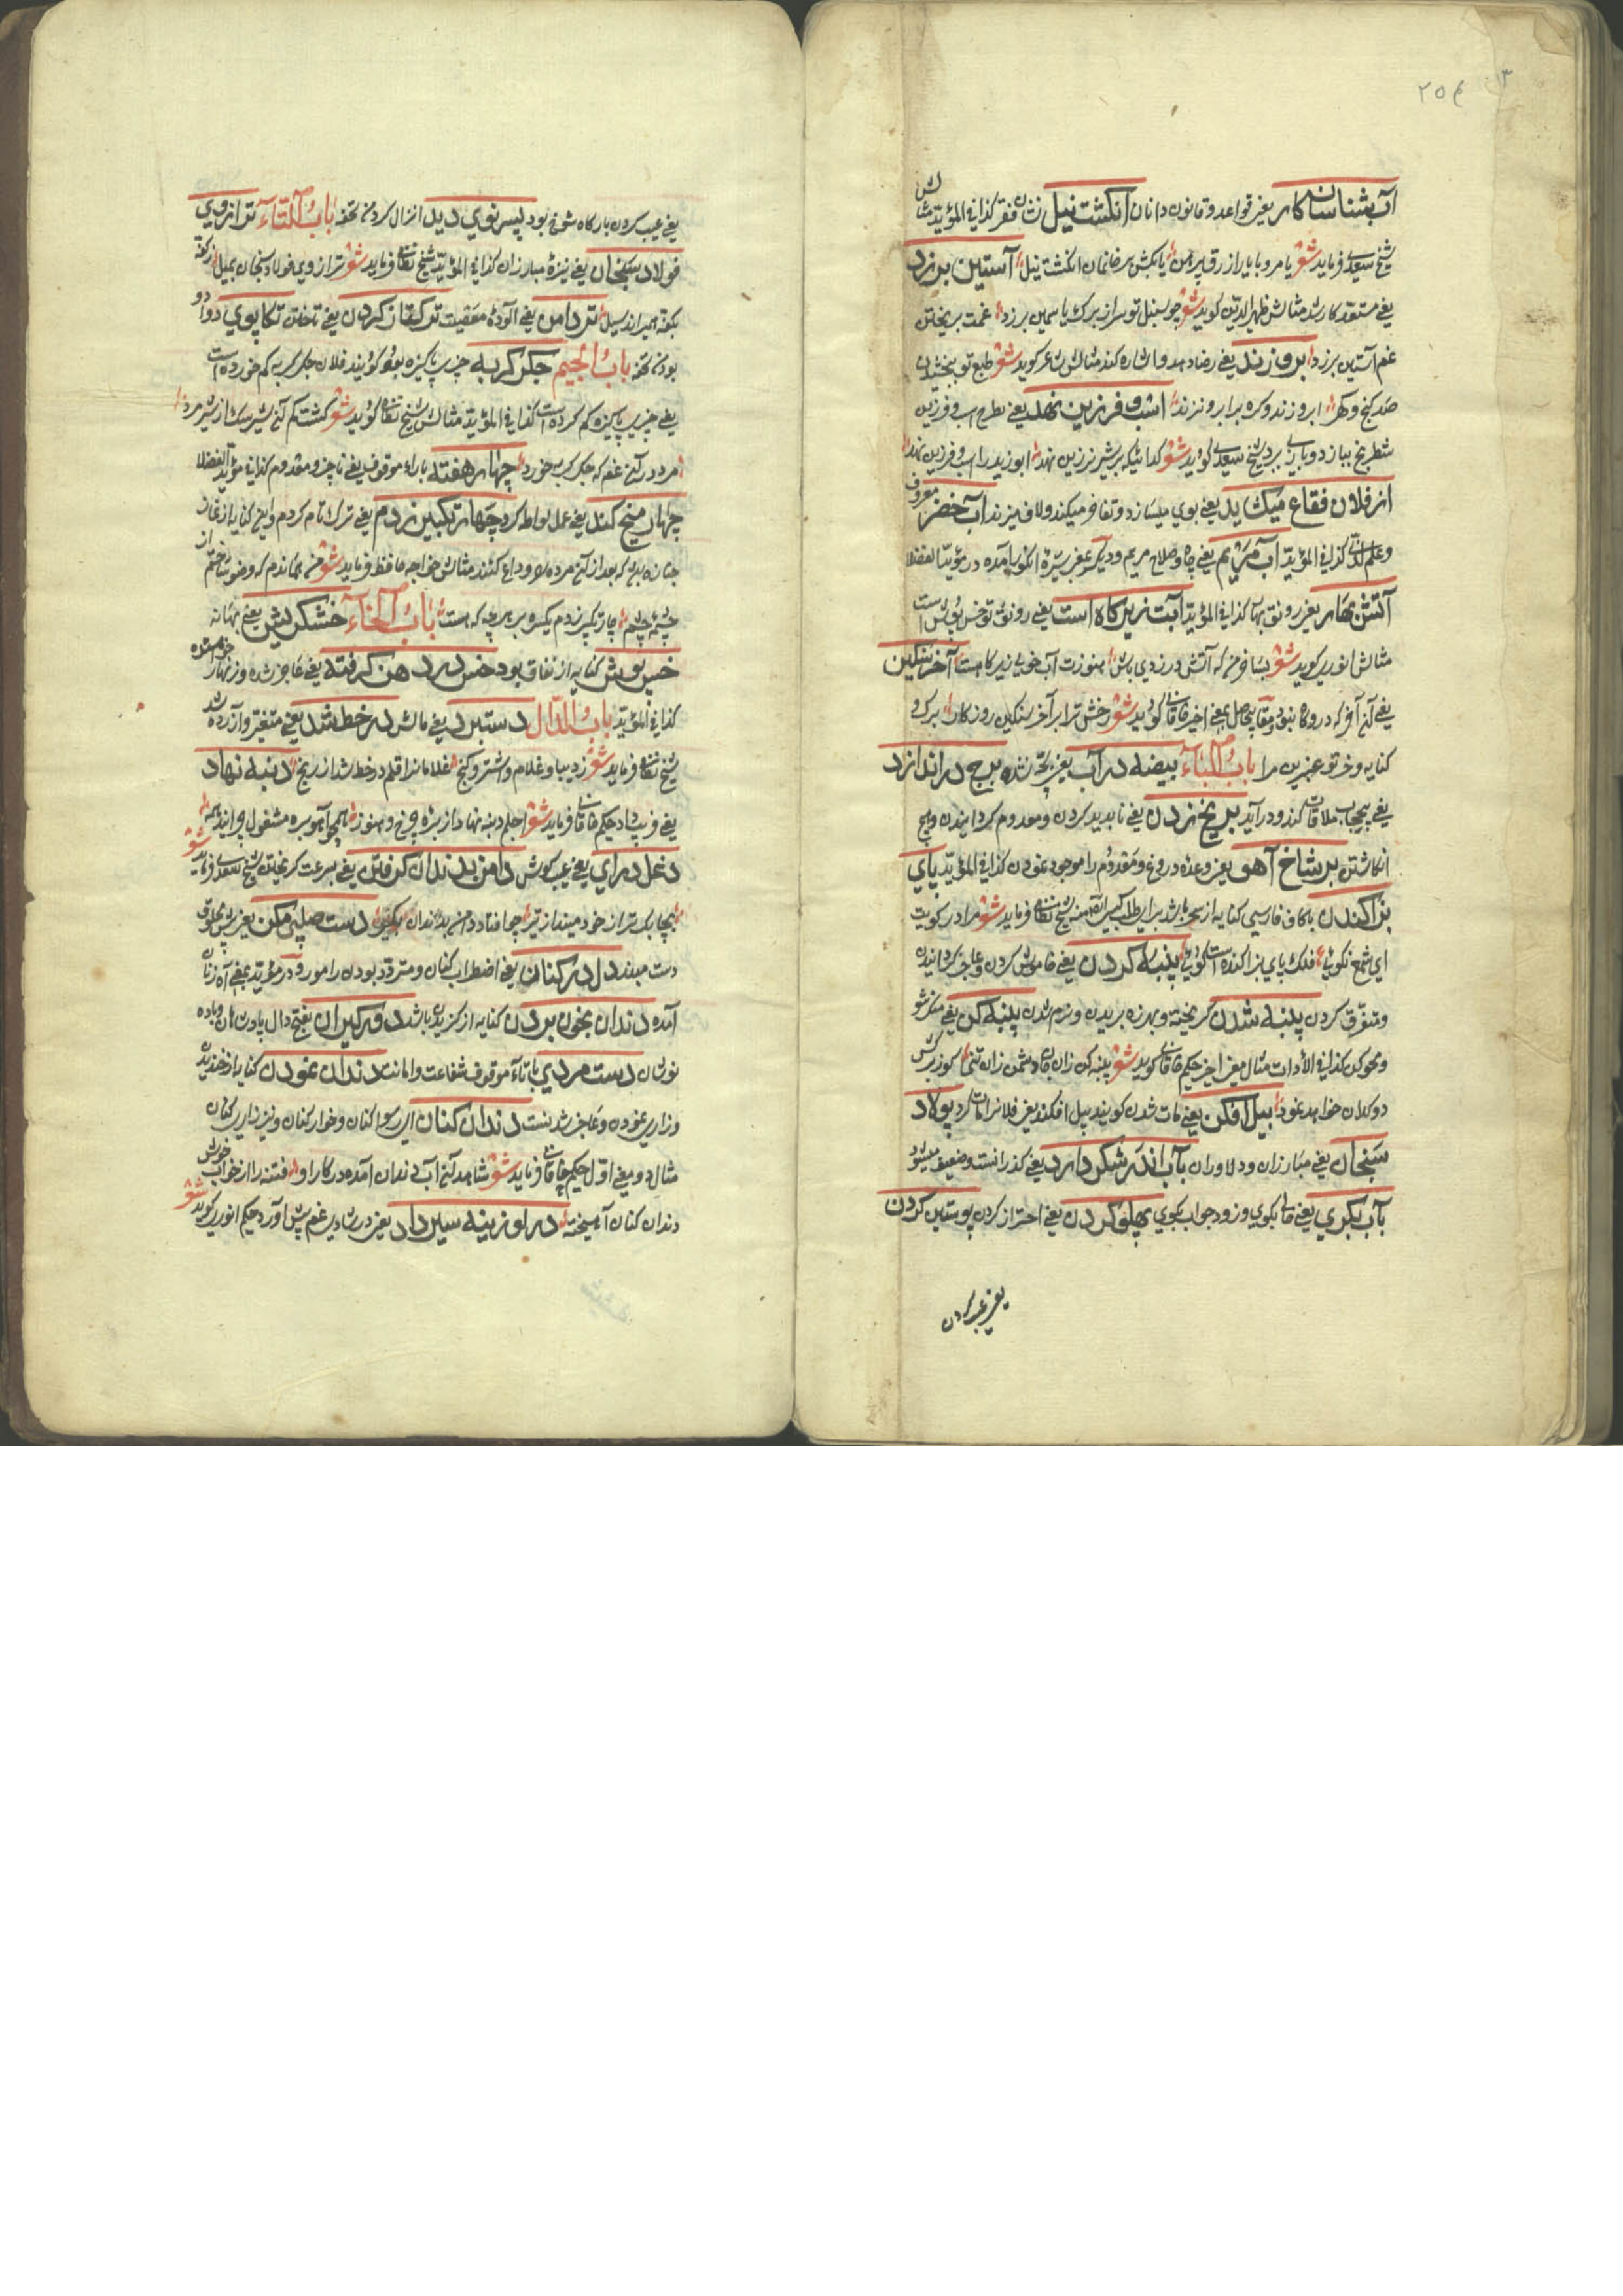 ۲۵۴
۱۳
آب شناسان کار یعنی قواعد و قانون دانان انگشت نیل نشان فقر کذا فی المؤید مثالش
شیخ سعدی فرماید شعر یا مرو با یار ازرق پیرهن یا بکش بر خانمان انگشت نیل آستین برزد
یعنی مستعد کار شد مثالش ظهیر الدین گوید شعر چو سنبل تو سر از برگ یاسمین برزد غمت بریختن
غم آستین برزد ابرو زند یعنی رضا دهد و اشاره کند مثالش شاعر گوید شعر طبع تو ببخشیدن
صد گنج و گهر ابرو زند و کره برابرو نزند اسب و فرزین نهد یعنی بطرح اسب و فرزین
شطرنج ببازد و بازی برد شیخ سعدی گوید شعر گدائیکه بر شیر نر زین نهد ابو زید را اسب و فرزین نهد
از فلان فقاع میگشاید یعنی بوی میسازد و تفاخر میکند و لاف میزند آب خضر معروف
و علم لدنی کذا فی المؤید آب مریم یعنی پاکی و صلاح مریم و دیگر بمعنی شیره انگور آمده در مؤید الفضلا
آتش بهار یعنی رونق بهار کذا فی المؤید آبت زیر کاه است یعنی رونق تو خس پوش است
مثالش انوری گوید شعر بسا خرمن که آتش در زدی باش هنوزت آب خوبی زیر کاه است آخر سنگین
یعنی آن آخر که درو کاه نبود و مقام بیحاصل بمعنی اخیر خاقانی گوید شعر رخش ترا بر آخر سنگین روزگار برگ و
کنایه و خر تو عنبرین مرا باب الباء بیضه در آب یعنی پخته شده برج در اندازد
یعنی بیحجاب ملاقات کند و درآید بر یخ زدن یعنی ناپدید کردن و معدوم گردانیدن و هیچ
انگاشتن بر شاخ آهو یعنی وعده دروغ و مقدوم را موجود نمودن کذا فی المؤید پای
بزاکندن باکاف فارسی کنایه از سحر باشد برای طلب کسی آمده شیخ نظامی فرماید شعر مرا در کویت
ای شمع نکویی فلک پای بزاکنده است گویی پنبه کردن یعنی خاموش کردن و عاجز گردانیدن
و متفرق کردن پنبه شدن گریخته و بهرزه بریدن و نرم شدن پنبه کن یعنی منکر شو
و محو کن کذا فی الادات مثال معنی اخیر حکیم خاقانی گوید شعر پنبه کن زان جان دشمن زان تنی کوز پرسش
دوکدان خواهد نمود پیل افکن یعنی مات شدن گویند پیل افکند یعنی فلانرا مات کرد پولاد
سنجان یعنی مبارزان و دلاوران بآب اندر شکر دارد یعنی گذرانست و ضعیف میشود
بآب بگری یعنی فالی بگوی و زود جواب بگوی پهلو کردن یعنی احتراز کردن پوستین کردن
یعنی عیب کردن
یعنی عیب کردن بارگاه شوخ بود پسر نوی دیل انزال کردن تحفه باب التاء ترازوی
فولاد سنجان یعنی نیزه مبارزان کذا فی المؤید شیخ نظامی فرماید شعر ترازوی فولاد سنجان بمیل ز کفه
بکفه همیراند سیل تر دامن یعنی آلوده معصیت ترکتاز کردن یعنی تاختن تکاپوی دوادو
بودن تحفه باب الجیم جگر گربه چیزی پاکیزه بود گویند فلان جگر گربه کم خورده است
یعنی چیزی پاکیزه کم کرده است کذا فی المؤید مثالش شیخ نظامی گوید شعر گشت کم آن شیر سگ از شیر مرد
مرد در آن غم که جگر گربه خورد چهار هفته با راء موقوف یعنی ناچیز و معدوم کذا فی مؤید الفضلا
چهار میخ کند یعنی عمل لواطه کرد چهار تکبیر زدم یعنی ترک تمام کردم و این کنایه از نماز
جنازه باشد که بعد از آن مرده را وداع کنند مثالش خواجه حافظ فرماید شعر من هماندم که وضو ساختم از
چشمه عشق چار تکبیر زدم یکسره بر هر چه که هست باب الخاء خشک ریش یعنی بهانه
خس پوش کنایه از نفاق بود خس در دهن گرفته یعنی عاجز شده و زنهار خواستند
کذا فی المؤید باب الدال دست برد یعنی مالش در خط شد یعنی متغیر و آزرده شد
شیخ نظامی فرماید شعر ز دیبا و غلام و اشتر و گنج غلامانرا قلم در خط شد از رنج دنبه نهاد
یعنی فریب داد حکیم خاقانی فرماید شعر اجلم دنبه نهاد از بره چرخ و هنوز همچو آهو بره مشغول چرائید همه
دغل درای یعنی عیب کوش دامن بدندان گرفتن یعنی بسرعت گریختن شیخ سعدی فرماید شعر
بچابک‌تر از خود مینداز تیر چو افتاد دامن بدندان بگیر دست صلیبی مکن یعنی پیش مخلوق
دست مبند دل در کنان یعنی اضطراب کنان و متردد بودن را مور و در مؤید بمعنی آه زنان
آمده دندان بخون بردن کنایه از گزیدن باشد دورگیران بفتح دال پادشاهان و باده
نوشان دست مردی با تاء موقوف شفاعت و امانت دندان نمودن کنایه از خندیدن
و زاری نمودن و عاجز شدنست دندان کنان ای رسوا کنان و خوار کنان و نیز زاری کنان
مثال دو معنی اول حکیم خاقانی فرماید شعر شاهد آن آب دندان آمده در کار او فتنه را از خواب خوش
دندان کنان آمیخته در لوزینه سیر داد یعنی در شادی غم پیش آورد حکیم انوری گوید شعر